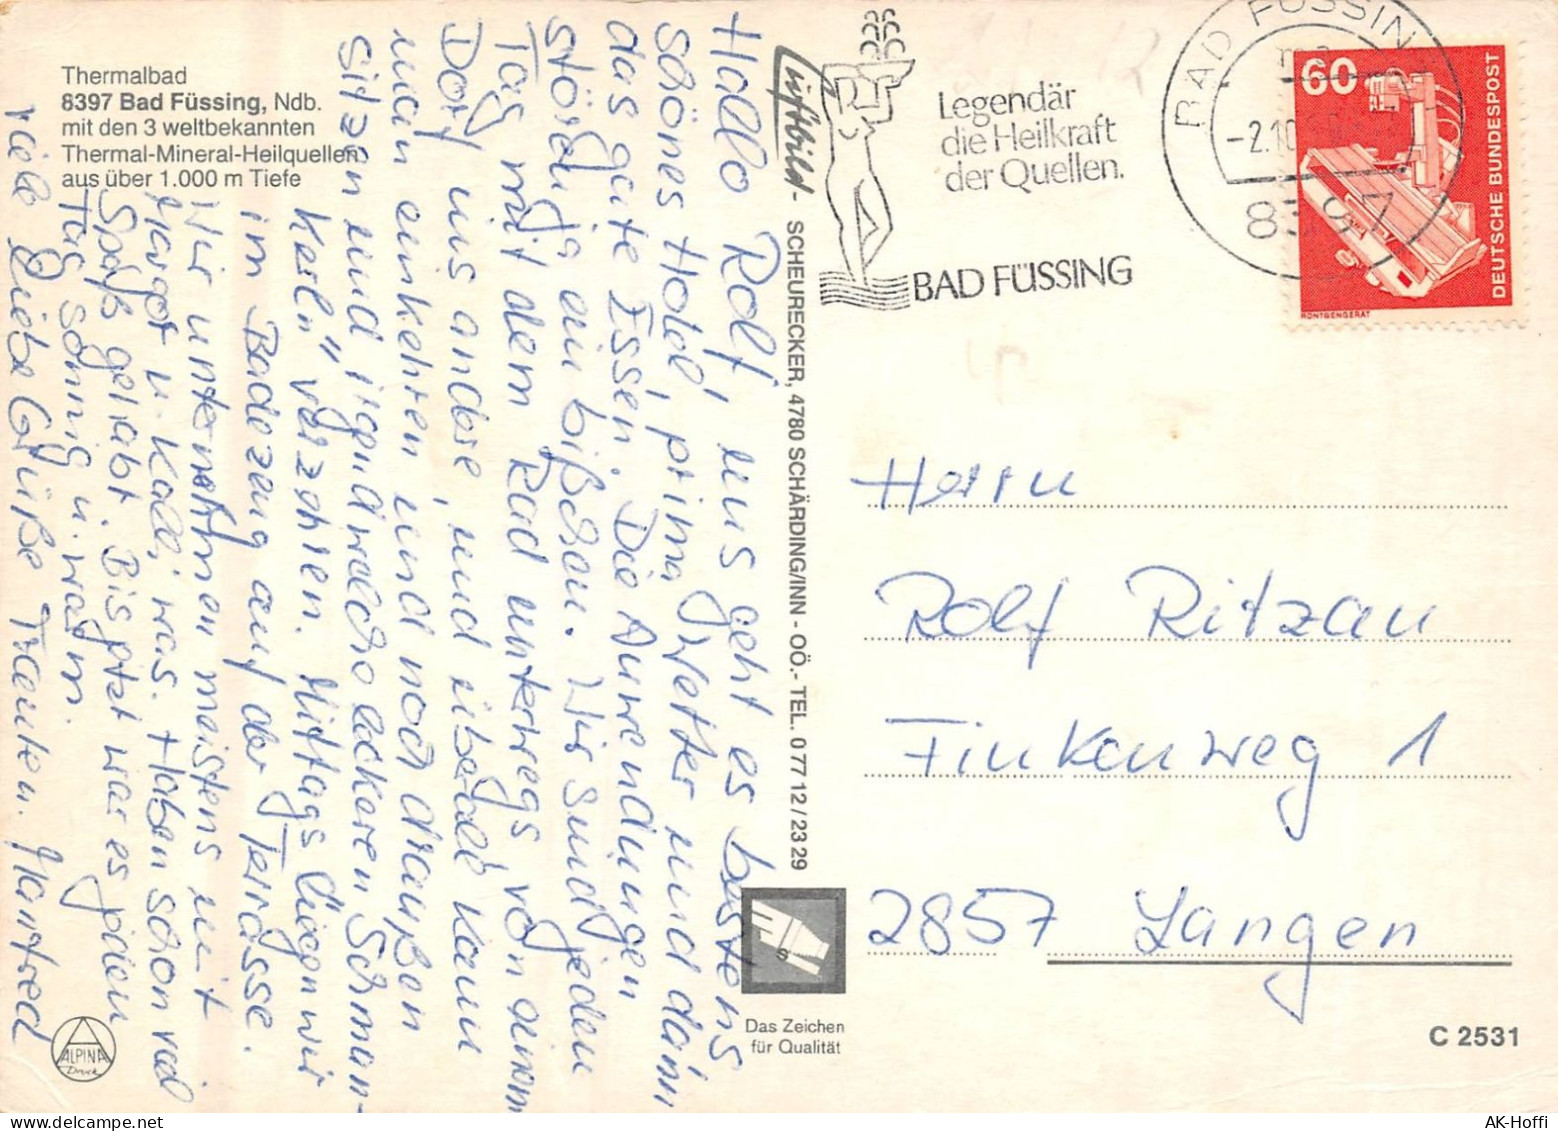 Thermalbad
8397 Bad Füssing, Ndb.
mit den 3 weltbekannten
Thermal-Mineral-Heilquellen
aus über 1.000 m Tiefe
Hallo Rolf, uns geht es bestens
schönes Hotel, prima Wetter und dann
das gute Essen. Die Anwendungen
stören ein bißchen. Wir sind jeden
Tag mit dem Rad unterwegs von einem
Dorf ins andere, und überall kann
man einkehren und noch draußen
sitzen und irgendwelche leckeren Schman-
kerln" verzehren. Mittags liegen wir
im Badezeug auf der Terrasse.
Wir unternehmen meistens mit
Margot u. Kalli was. Haben schon viel
Spaß gehabt. Bis jetzt war es jeden
Tag sonnig u. warm.
viele liebe Grüße Frauken. Manfred
Luftbild - SCHEURECKER, 4780 SCHÄRDING/INN - OÖ.- TEL. 0 77 12 / 23 29
Legendär
die Heilkraft
der Quellen.
BAD FÜSSING
BAD FÜSSING
-2.10
8397
60
DEUTSCHE BUNDESPOST
RÖNTGENGERÄT
Herrn
Rolf Ritzau
Finkenweg 1
2857 Langen
S
Das Zeichen
für Qualität
C 2531
ALPINA
Druck
www.delcampe.net
AK-Hoffi